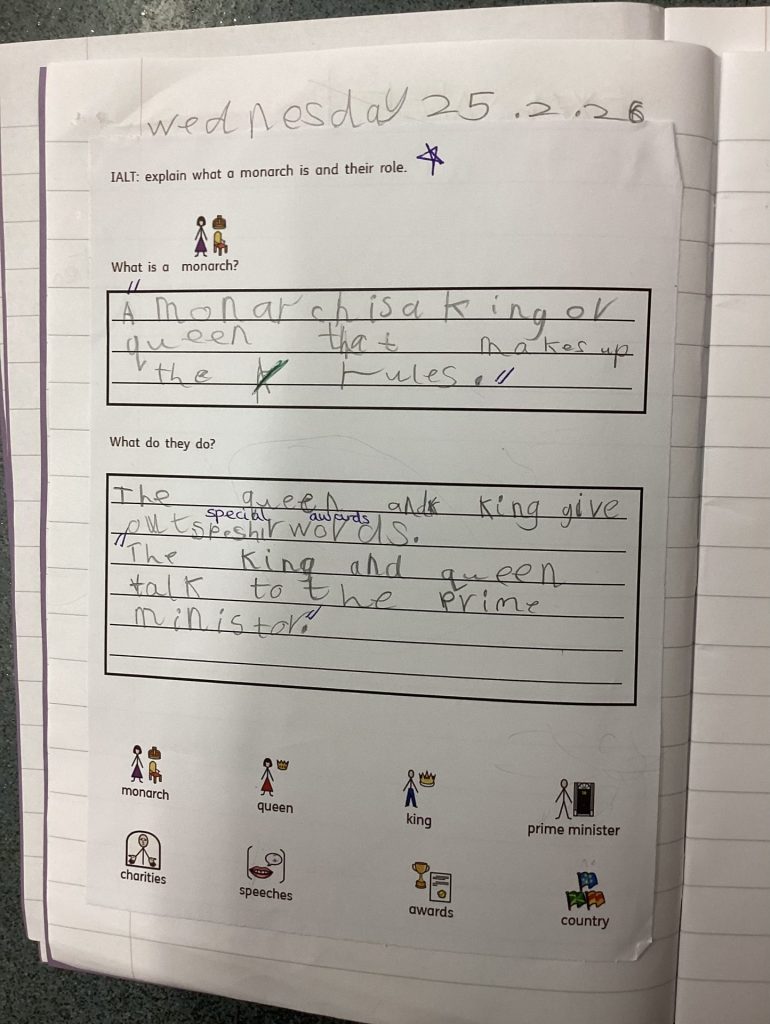 wednesday 25.2.26
IALT: explain what a monarch is and their role.
What is a monarch?
A monarch is a king or
queen that makes up
the rules.
What do they do?
The queen and king give
special awards
out speshir words.
The king and queen
talk to the prime
ministor.
monarch queen king prime minister
charities speeches awards country